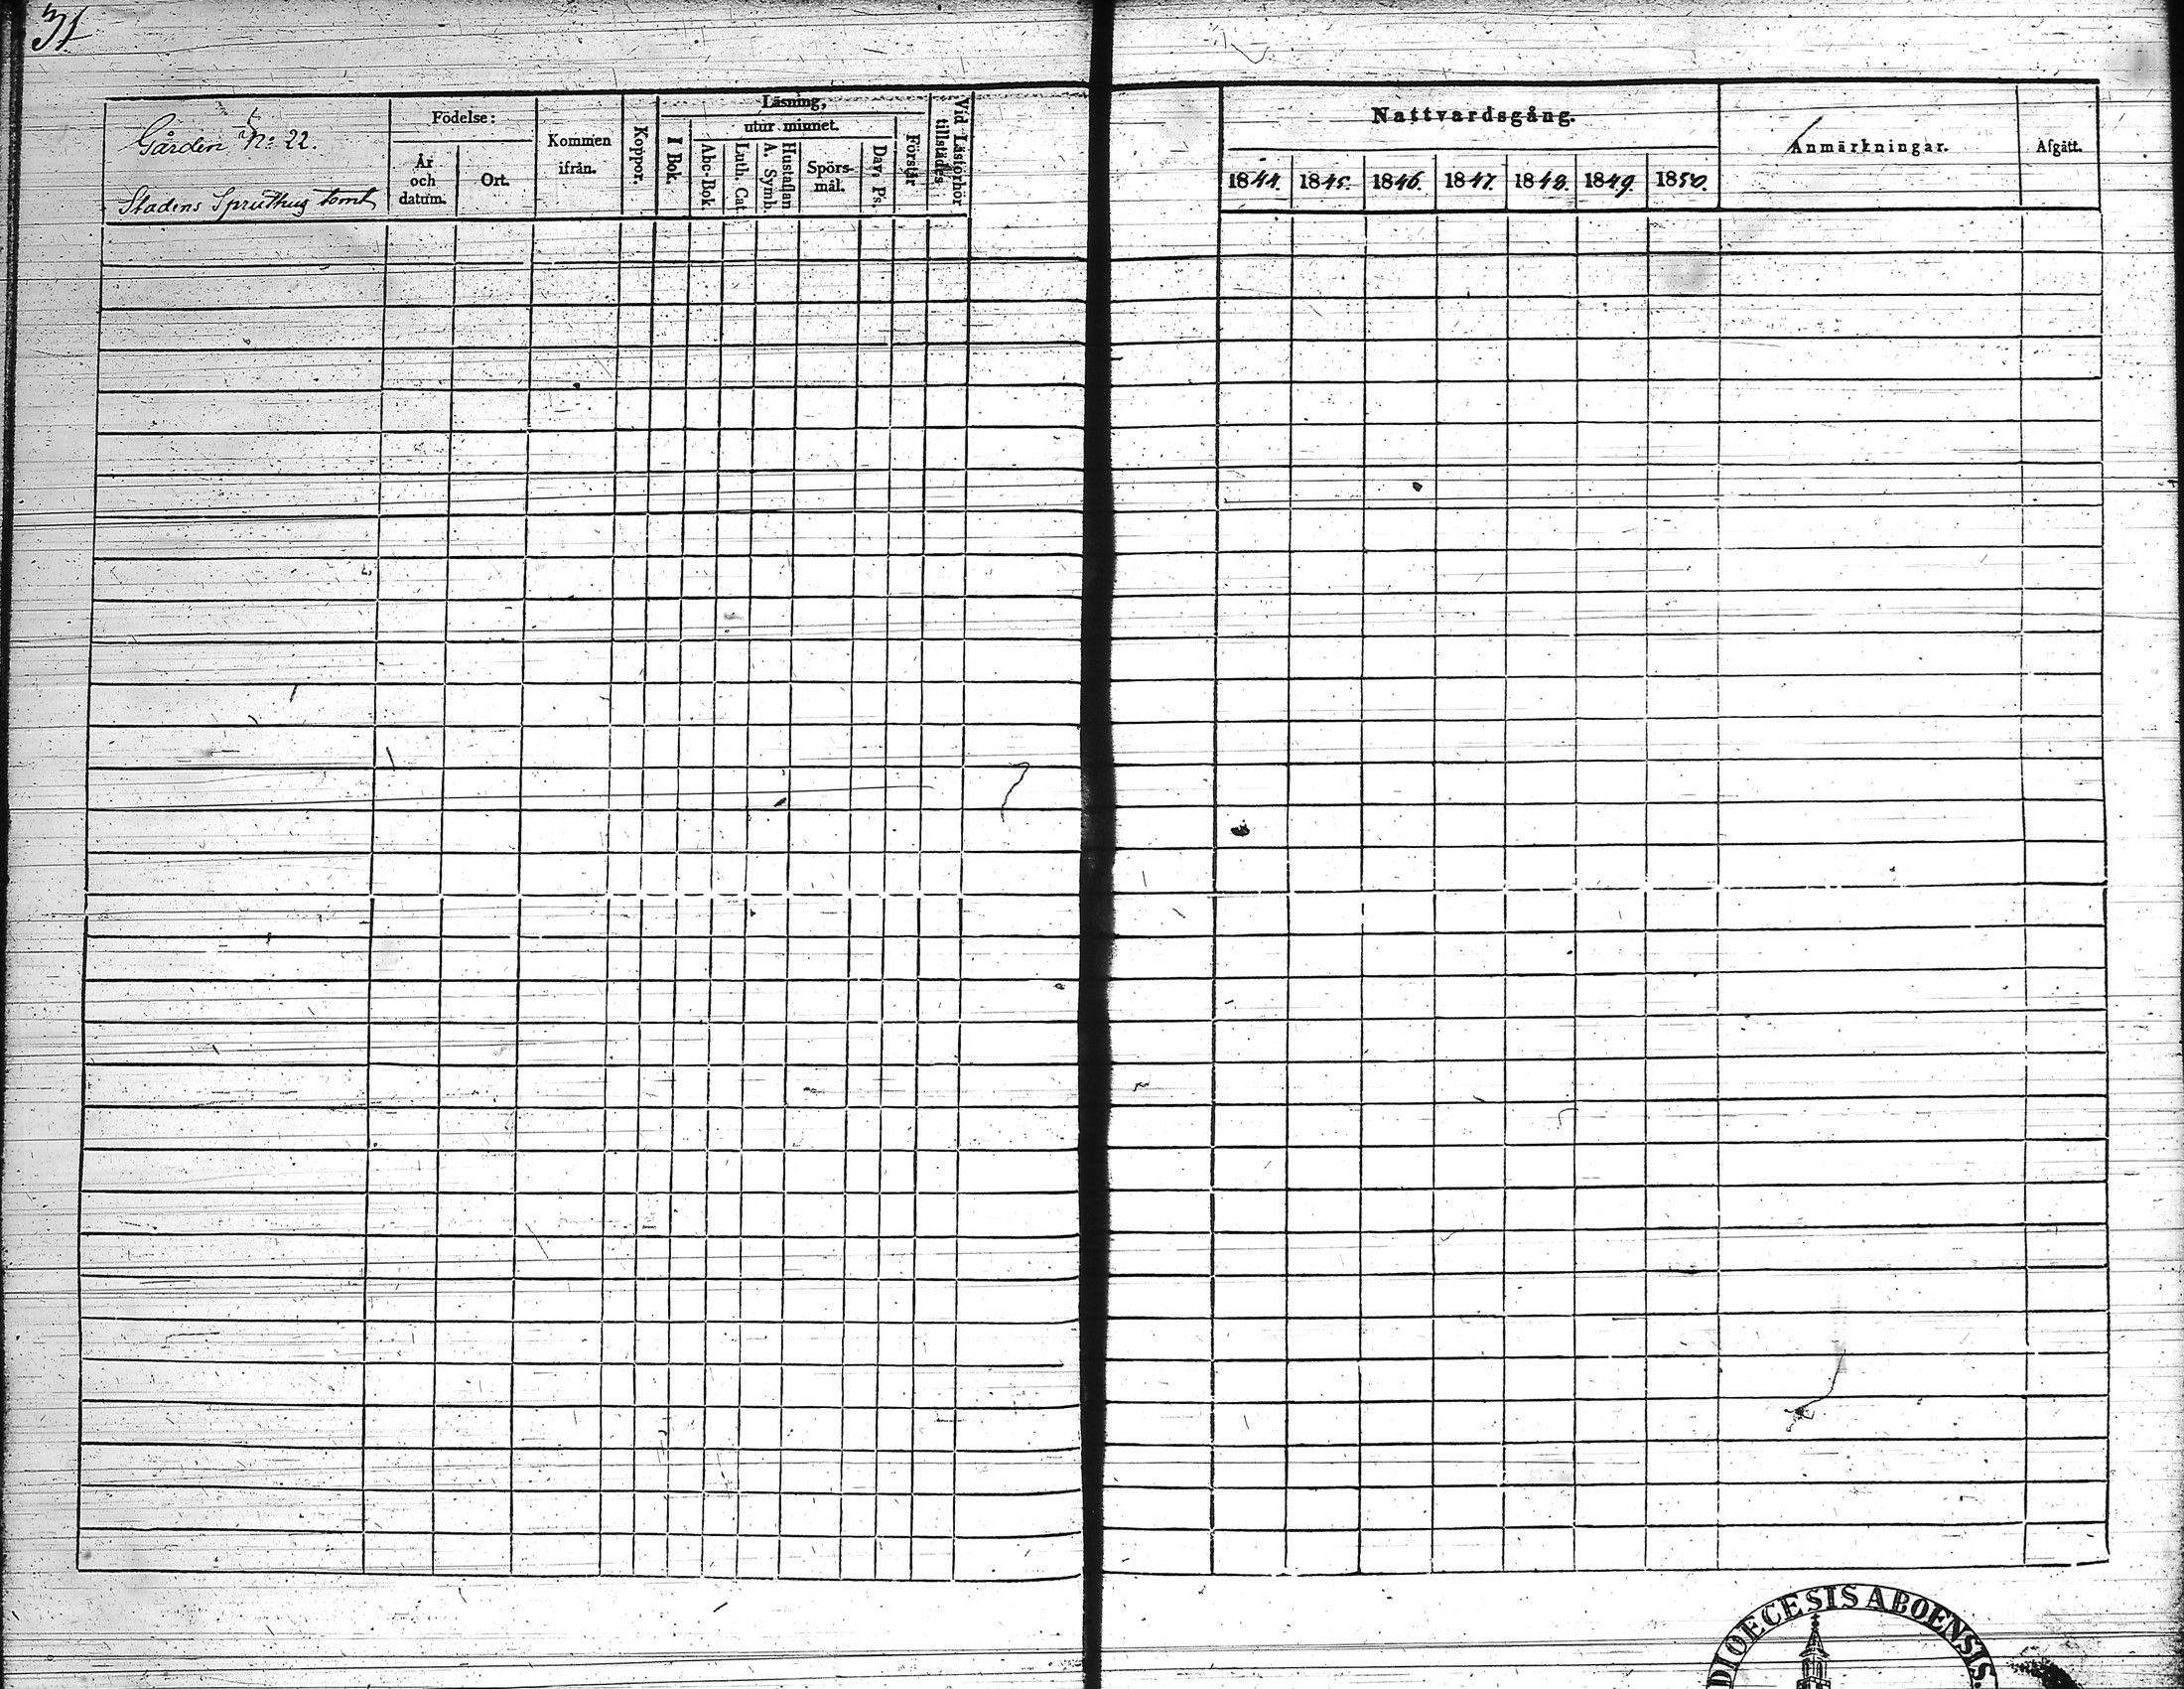 31
Gården N:o 22.
Stadens Spruthus tomt
Födelse:
År
och
datum.
Ort.
Kommen
ifrån.
Koppor.
Läsning,
utur minnet.
I Bok.
Abc-Bok.
Luth. Cat.
A. Symb.
Hustaflan
Spörs-
mål.
Dav. Ps.
Förstår
Vid Läsförhör
tillstädes
Nattvardsgång.
1844. 1845. 1846. 1847. 1848. 1849. 1850.
Anmärkningar.
Afgått.
DIOECESIS ABOENSIS.